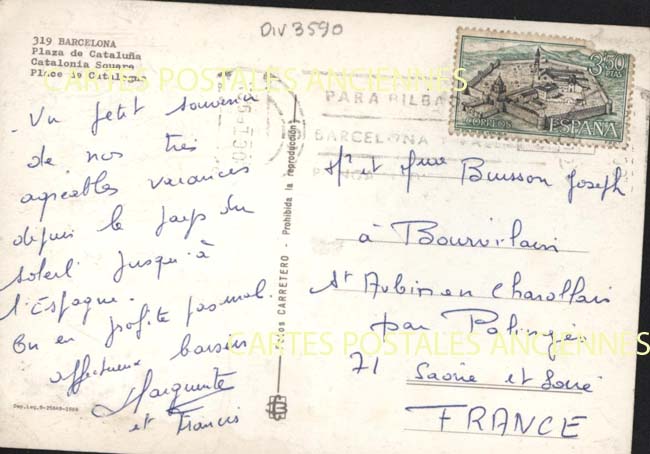 DIV 3590
319 BARCELONA
Plaza de Cataluña
Catalonia Square
Place de Catalogne
CARTES POSTALES ANCIENNES
3,50
PTAS
CORREOS ESPAÑA
PARA BILBA
BARCELONA
- Un petit souvenir
de nos très
agréables vacances
depuis le pays du
soleil jusqu'à
l'Espagne.
On en profite pas mal.
affectueux baisers
Marguerite
et Francis
Prohibida la reproducción
CARRETERO
Mr et Mme Buisson Joseph
à Bourvilain
St Aubin en Charollais
par Palinges
71 Saône et Loire
FRANCE
CARTES POSTALES ANCIENNES
Dep. Leg. B-